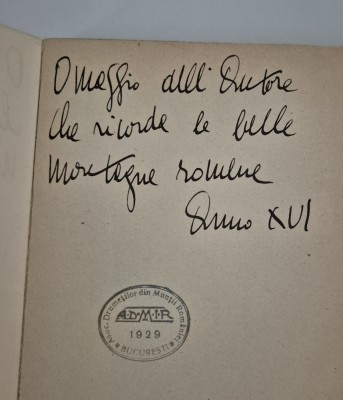 Omaggio dell'Autore
che ricorda le belle
montagne romene
Anno XVI
Asoc. Drumeților din Munții României
A.D.M.I.R.
1929
BUCUREȘTI